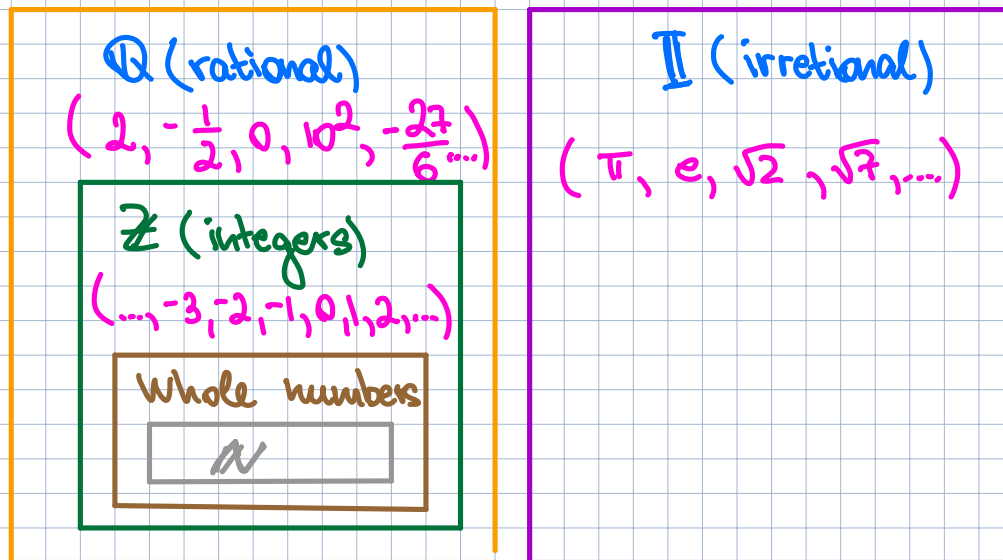 ℚ (rational)
(2, -1/2, 0, 10², -27/6....)
ℤ (integers)
(...., -3, -2, -1, 0, 1, 2, ....)
Whole numbers
ℕ
𝕀 (irretional)
(π, e, √2, √7, ....)